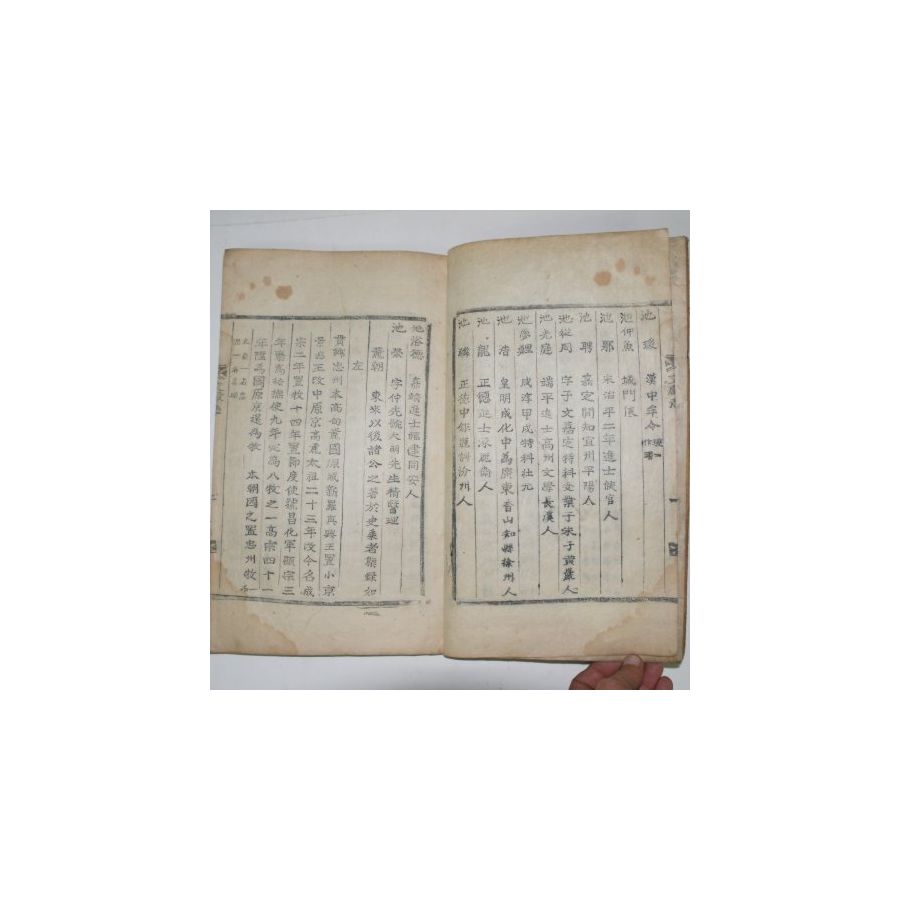 池 瑗 漢中守令
池仲魚 城門侯
池 鄂 宋治平二年進士候官人
池 聘 嘉定間知宜州平陽人
池從周 字子文嘉定特科受業于朱子黃巖人
池光庭 端平進士高州文學長溪人
池夢鯉 咸淳甲戌特科壯元
池 浩 皇明成化中爲廣東香山知縣徐州人
池 龍 正德進士永嘉衛人
池 麟 正德中 汾州人
池浴德 嘉靖進士福建同安人
池 榮 字仲先號大明先生精醫理
麗朝 東來以後諸公之著於史乘者顯錄如
左
貫鄕忠州本高句麗國原城新羅眞興王置小京
景德王改中原京高麗太祖二十三年改今名成
宗二年置牧十四年置節度使號昌化軍顯宗三
年廢爲按撫使九年定爲八牧之一高宗四十一
年陞爲國原京還爲牧 本朝國之置忠州牧一